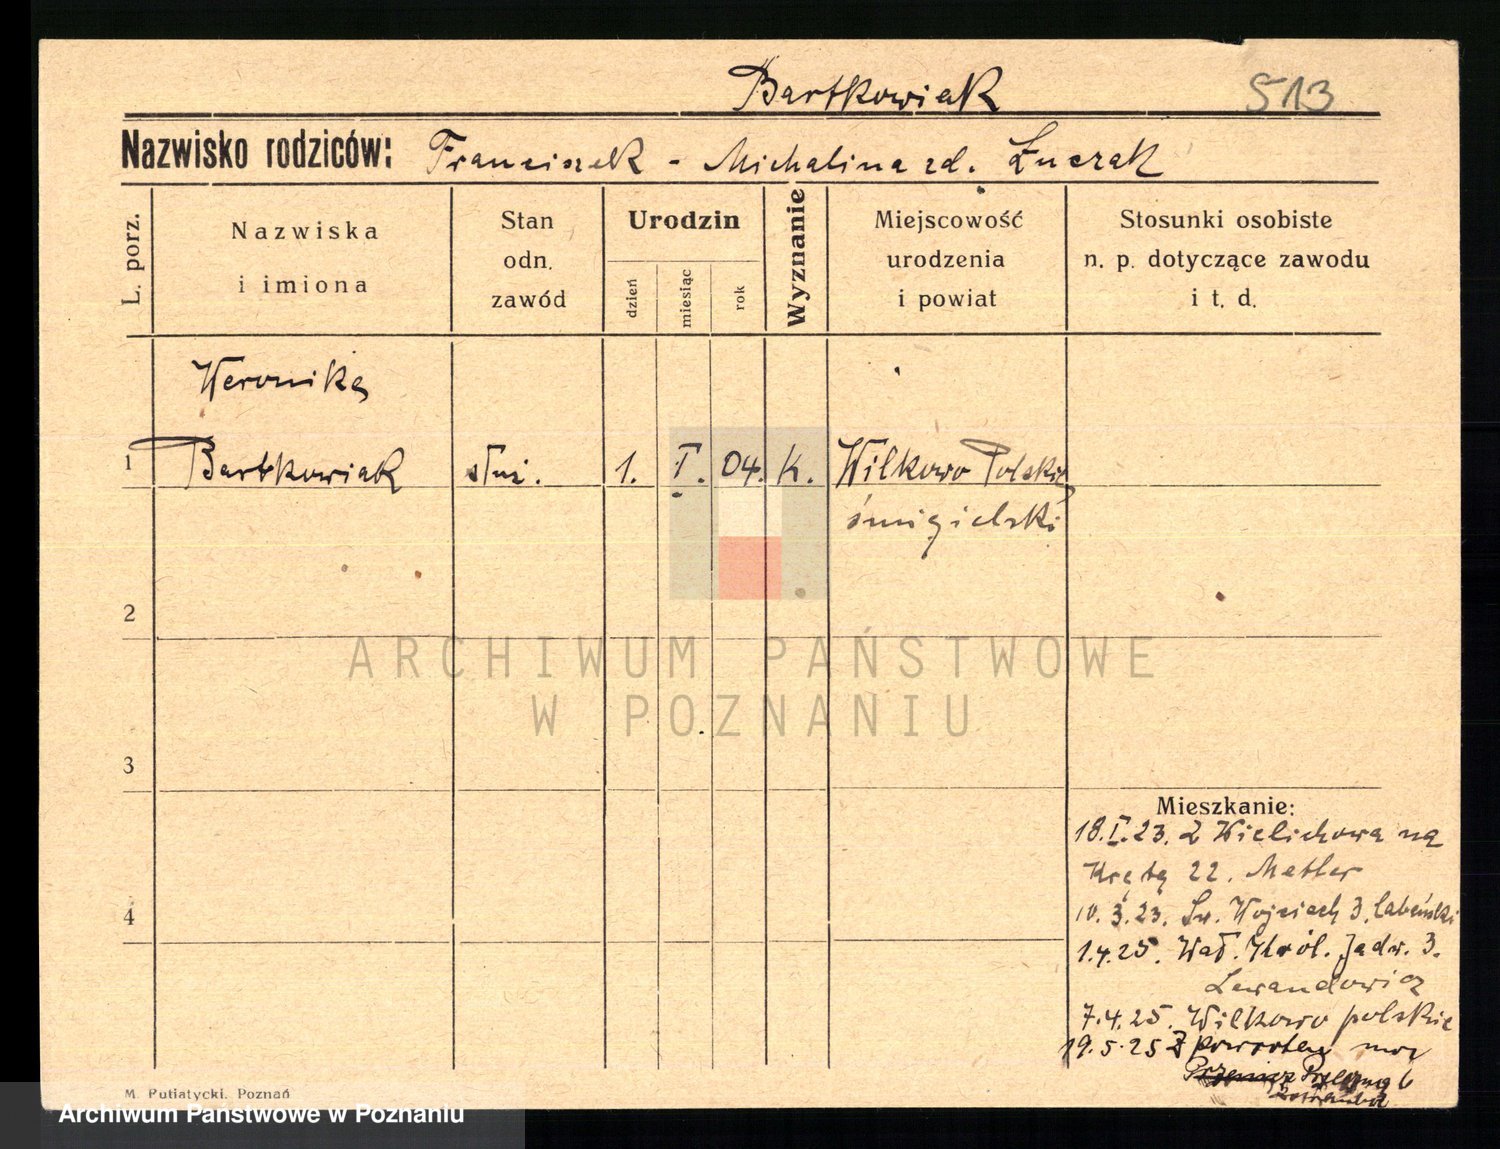 Bartkowiak 513
Nazwisko rodziców: Franciszek - Michalina zd. Łuczak
L. porz.
Nazwiska
i imiona
Stan
odn.
zawód
Urodzin
dzień
miesiąc
rok
Wyznanie
Miejscowość
urodzenia
i powiat
Stosunki osobiste
n. p. dotyczące zawodu
i t. d.
Weronika
1 Bartkowiak służ. 1. I. 04. K. Wilkowo Polskie
śmigielski
2
ARCHIWUM PAŃSTWOWE
W POZNANIU
3
Mieszkanie:
18.I.23. Z Wielichowa na
Krętą 22. Metler
10.3.23. Św. Wojciech 3. Łabeński
4
1.4.25. Wał. Król. Jadw. 3.
Lewandowicz
7.4.25. Wilkowo polskie
19.5.25 Z powrotem
6
M. Putiatycki. Poznań
Archiwum Państwowe w Poznaniu